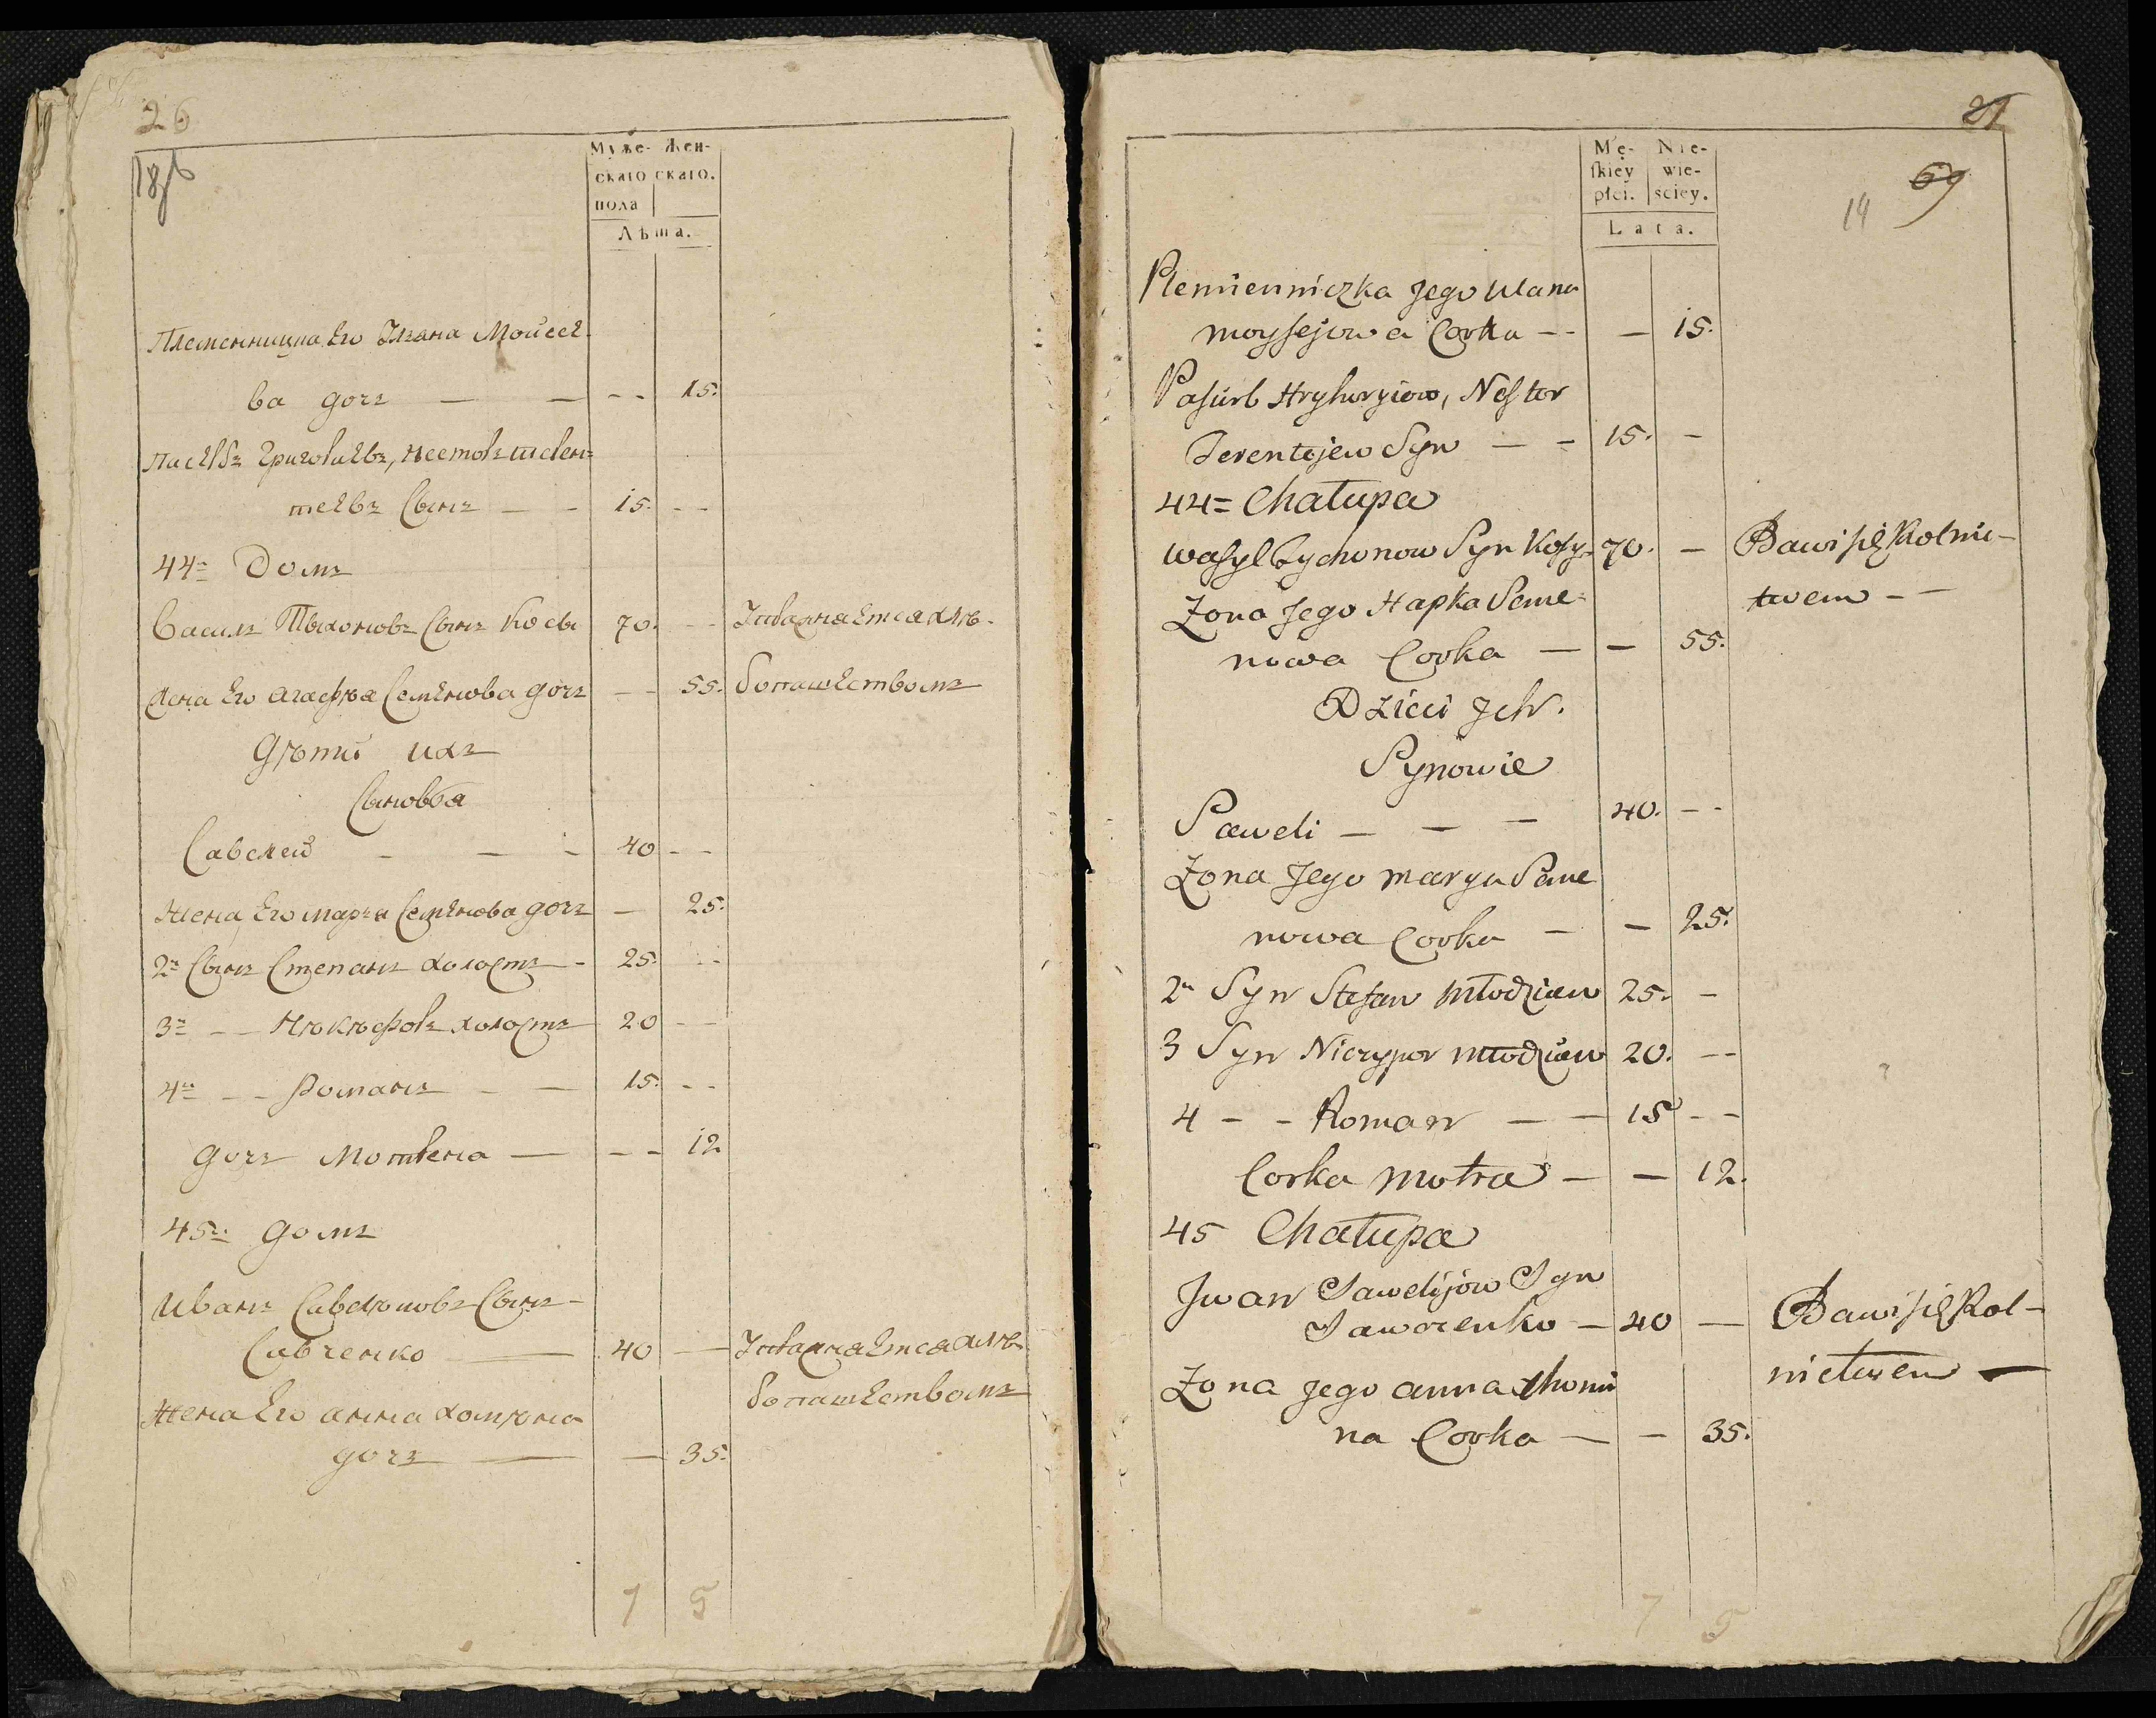 26
Муже- Жен-
скаго скаго.
пола
Лѣта.
Племенница Его Улана Моисее-
ва дочь — — - - 15.
Пасербъ Григориевъ, Нестор Терен-
теевъ Сынъ — - 15. - -
44= Домъ
Василь Тыхоновъ Сынъ Косы 70. - - Упражняется хлѣ-
Жена Его Агафия Семенова дочь — 55. бопашествомъ
Дѣти ихъ
Сыновья
Савелей - — - 40 - -
Жена Его Марья Семенова дочь — 25.
2й Сынъ Степанъ холостъ - 25. - -
3й - — Никифоръ холостъ 20 - -
4й - - Романъ - — 15. - -
дочь Мотрена — - - 12
45й домъ
Иванъ Савелиовъ Сынъ -
Савченко — 40 — Упражняется хлѣ-
Жена Его Анна Хомина бопашествомъ
дочь — — 35.
7 5
21
69
14
Mę- Nie-
skiey wie-
płci. sciey.
Lata.
Plemienniczka Jego Ulana
Moysejowa Corka - - — 15.
Pasiirb Hryhoryiow, Nestor
Terentejew Syn — - 15. -
44= Chałupa
Wasyl Tychonow Syn Kosy- 70. — Bawi się Rolnic-
Zona Jego Hapka Seme- twem - —
nowa Corka — — 55.
Dzieci Jch.
Synowie
Saweli — — — 40. - -
Zona Jego Marya Seme
nowa Corka — — 25.
2й Syn Stefan Młodzian 25. -
3 Syn Niczypor Młodzian 20. - -
4 - - Roman — — 15 - -
Corka Motra — — 12.
45 Chałupa
Jwan Sawelijow Syn
Sawczenko — 40 — Bawi się Rol-
Zona Jego Anna Chomi nictwem —
na Corka — — 35.
7 5